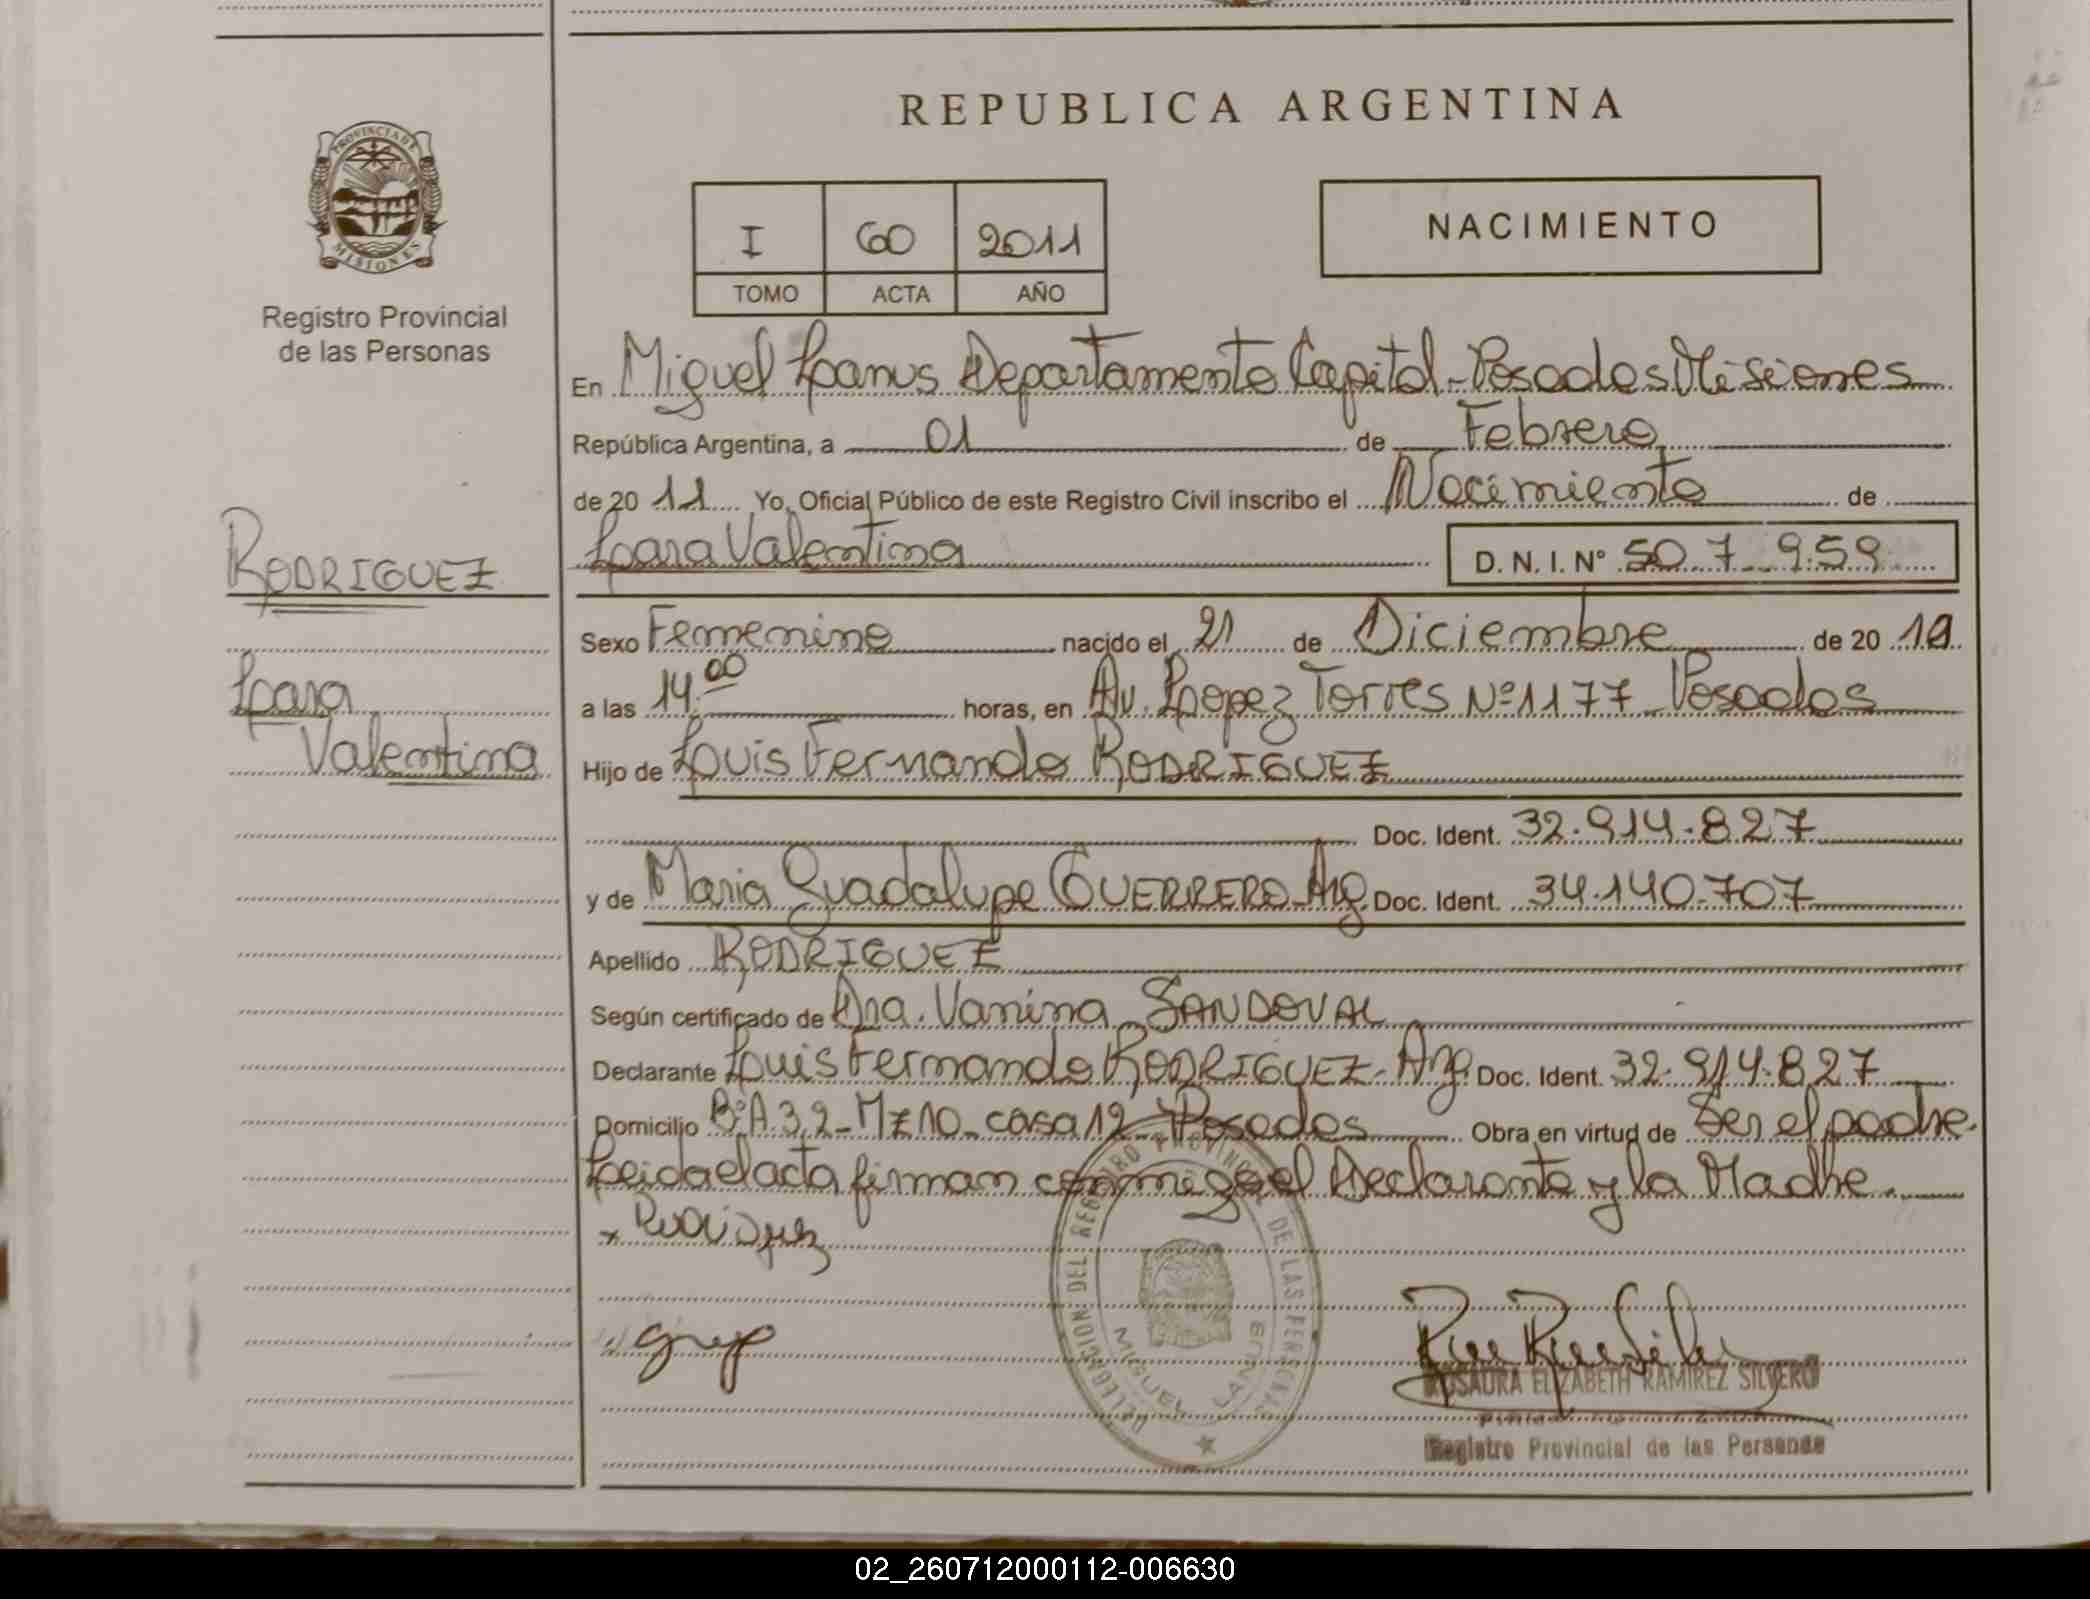 REPUBLICA ARGENTINA
PROVINCIA DE
MISIONES
Registro Provincial
de las Personas
I 60 2011
TOMO ACTA AÑO
NACIMIENTO
En Miguel Lanus Departamento Capital - Posadas Misiones
República Argentina, a 01 de Febrero
de 20 11 Yo, Oficial Público de este Registro Civil inscribo el Nacimiento de
Lara Valentina D. N. I. N° 50.7 9.59
RODRIGUEZ
Lara
Valentina
Sexo Femenino nacido el 21 de Diciembre de 20 10
a las 14.00 horas, en Av. Lopez Torres Nº 1177 Posadas
Hijo de Louis Fernando RODRIGUEZ
Doc. Ident. 32.914.827
y de Maria Guadalupe GUERRERO Arg. Doc. Ident. 34.140.707
Apellido RODRIGUEZ
Según certificado de Dra. Vanina SANDOVAL
Declarante Louis Fernando RODRIGUEZ - Arg. Doc. Ident. 32.914.827
Domicilio Bº A.3.2 - Mz 10 - casa 12 - Posadas Obra en virtud de Ser el padre.
Leida el acta firman conmigo el Declarante y la Madre.
x Rodriguez
DELEGACION DEL REGISTRO PROVINCIAL DE LAS PERSONAS
MIGUEL LANUS
ROSAURA ELIZABETH RAMIREZ SILVERO
Registro Provincial de las Personas
02_260712000112-006630